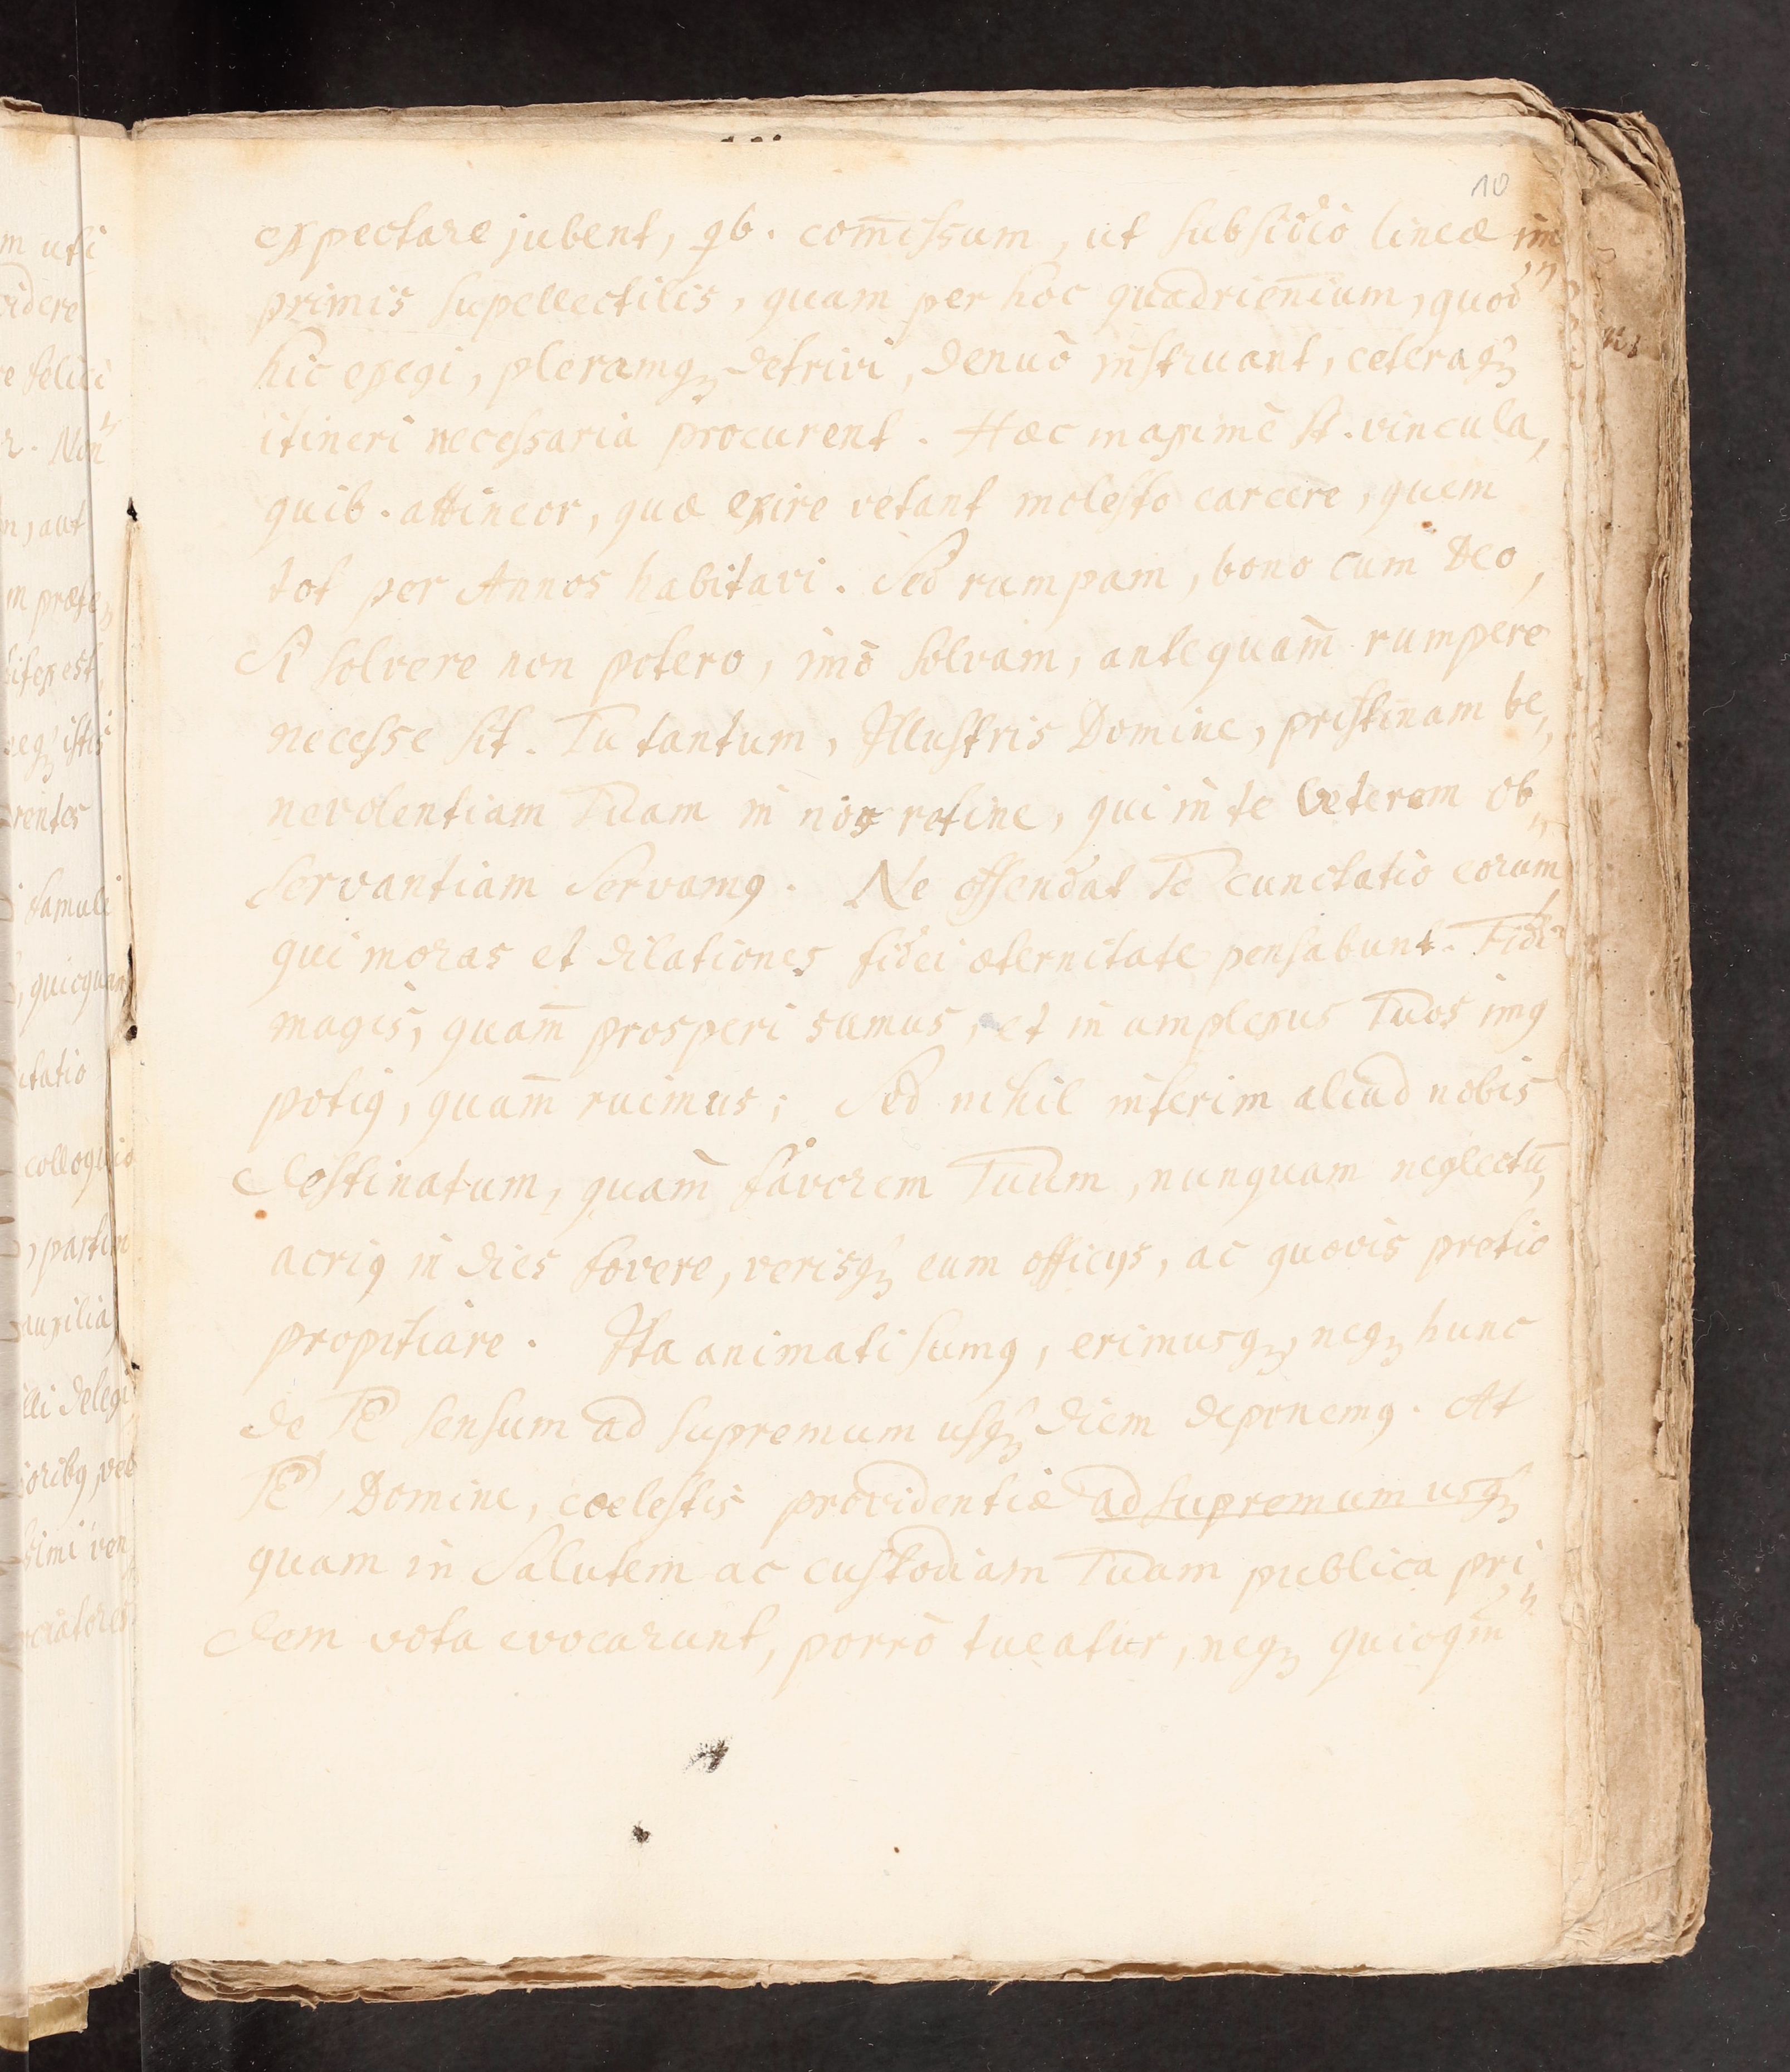 10
expectare jubent, qb. com̄issum, ut subsidio lineæ im,,
primis supellectilis, quam per hoc quadrien̄ium, quod
hic exegi, pleramq₃ detrivi, denuò instruant, ceteraq₃
itineri necessaria procurent. Hæc maximè st. vincula,
quib. attineor, quæ exire vetant molesto carcere, quem
tot per Annos habitavi. Sed rumpam, bono cum Deo,
Si solvere non potero, imò solvam, antequam̄ rumpere
necesse sit. Tu tantum, Illustris Domine, pristinam be,,
nevolentiam Tuam in nos retine, qui in te veterem ob,,
servantiam servamꝯ. Ne offendat Te cunctatio eorum,
qui moras et dilationes fidei æternitate pensabunt. Fidi
magis, quam̄ prosperi sumus, et in amplexus Tuos imꝯ
potiꝯ, quam̄ ruimus; Sed nihil interim aliud nobis
destinatum, quam̄ favorem Tuum, nunquam neglectū,
acriꝯ in dies fovere, verisq₃ eum officijs, ac quovis pretio
propitiare. Ita animati sumꝯ, erimusq₃, neq₃ hunc
de TE sensum ad supremum usq₃ diem deponemꝯ. At
TE, Domine, coelestis providentiæ ad supremum usq₃
quam in Salutem ac custodiam Tuam publica pri,,
dem vota evocarunt, porrò tueatur, neq₃ quicqm̄